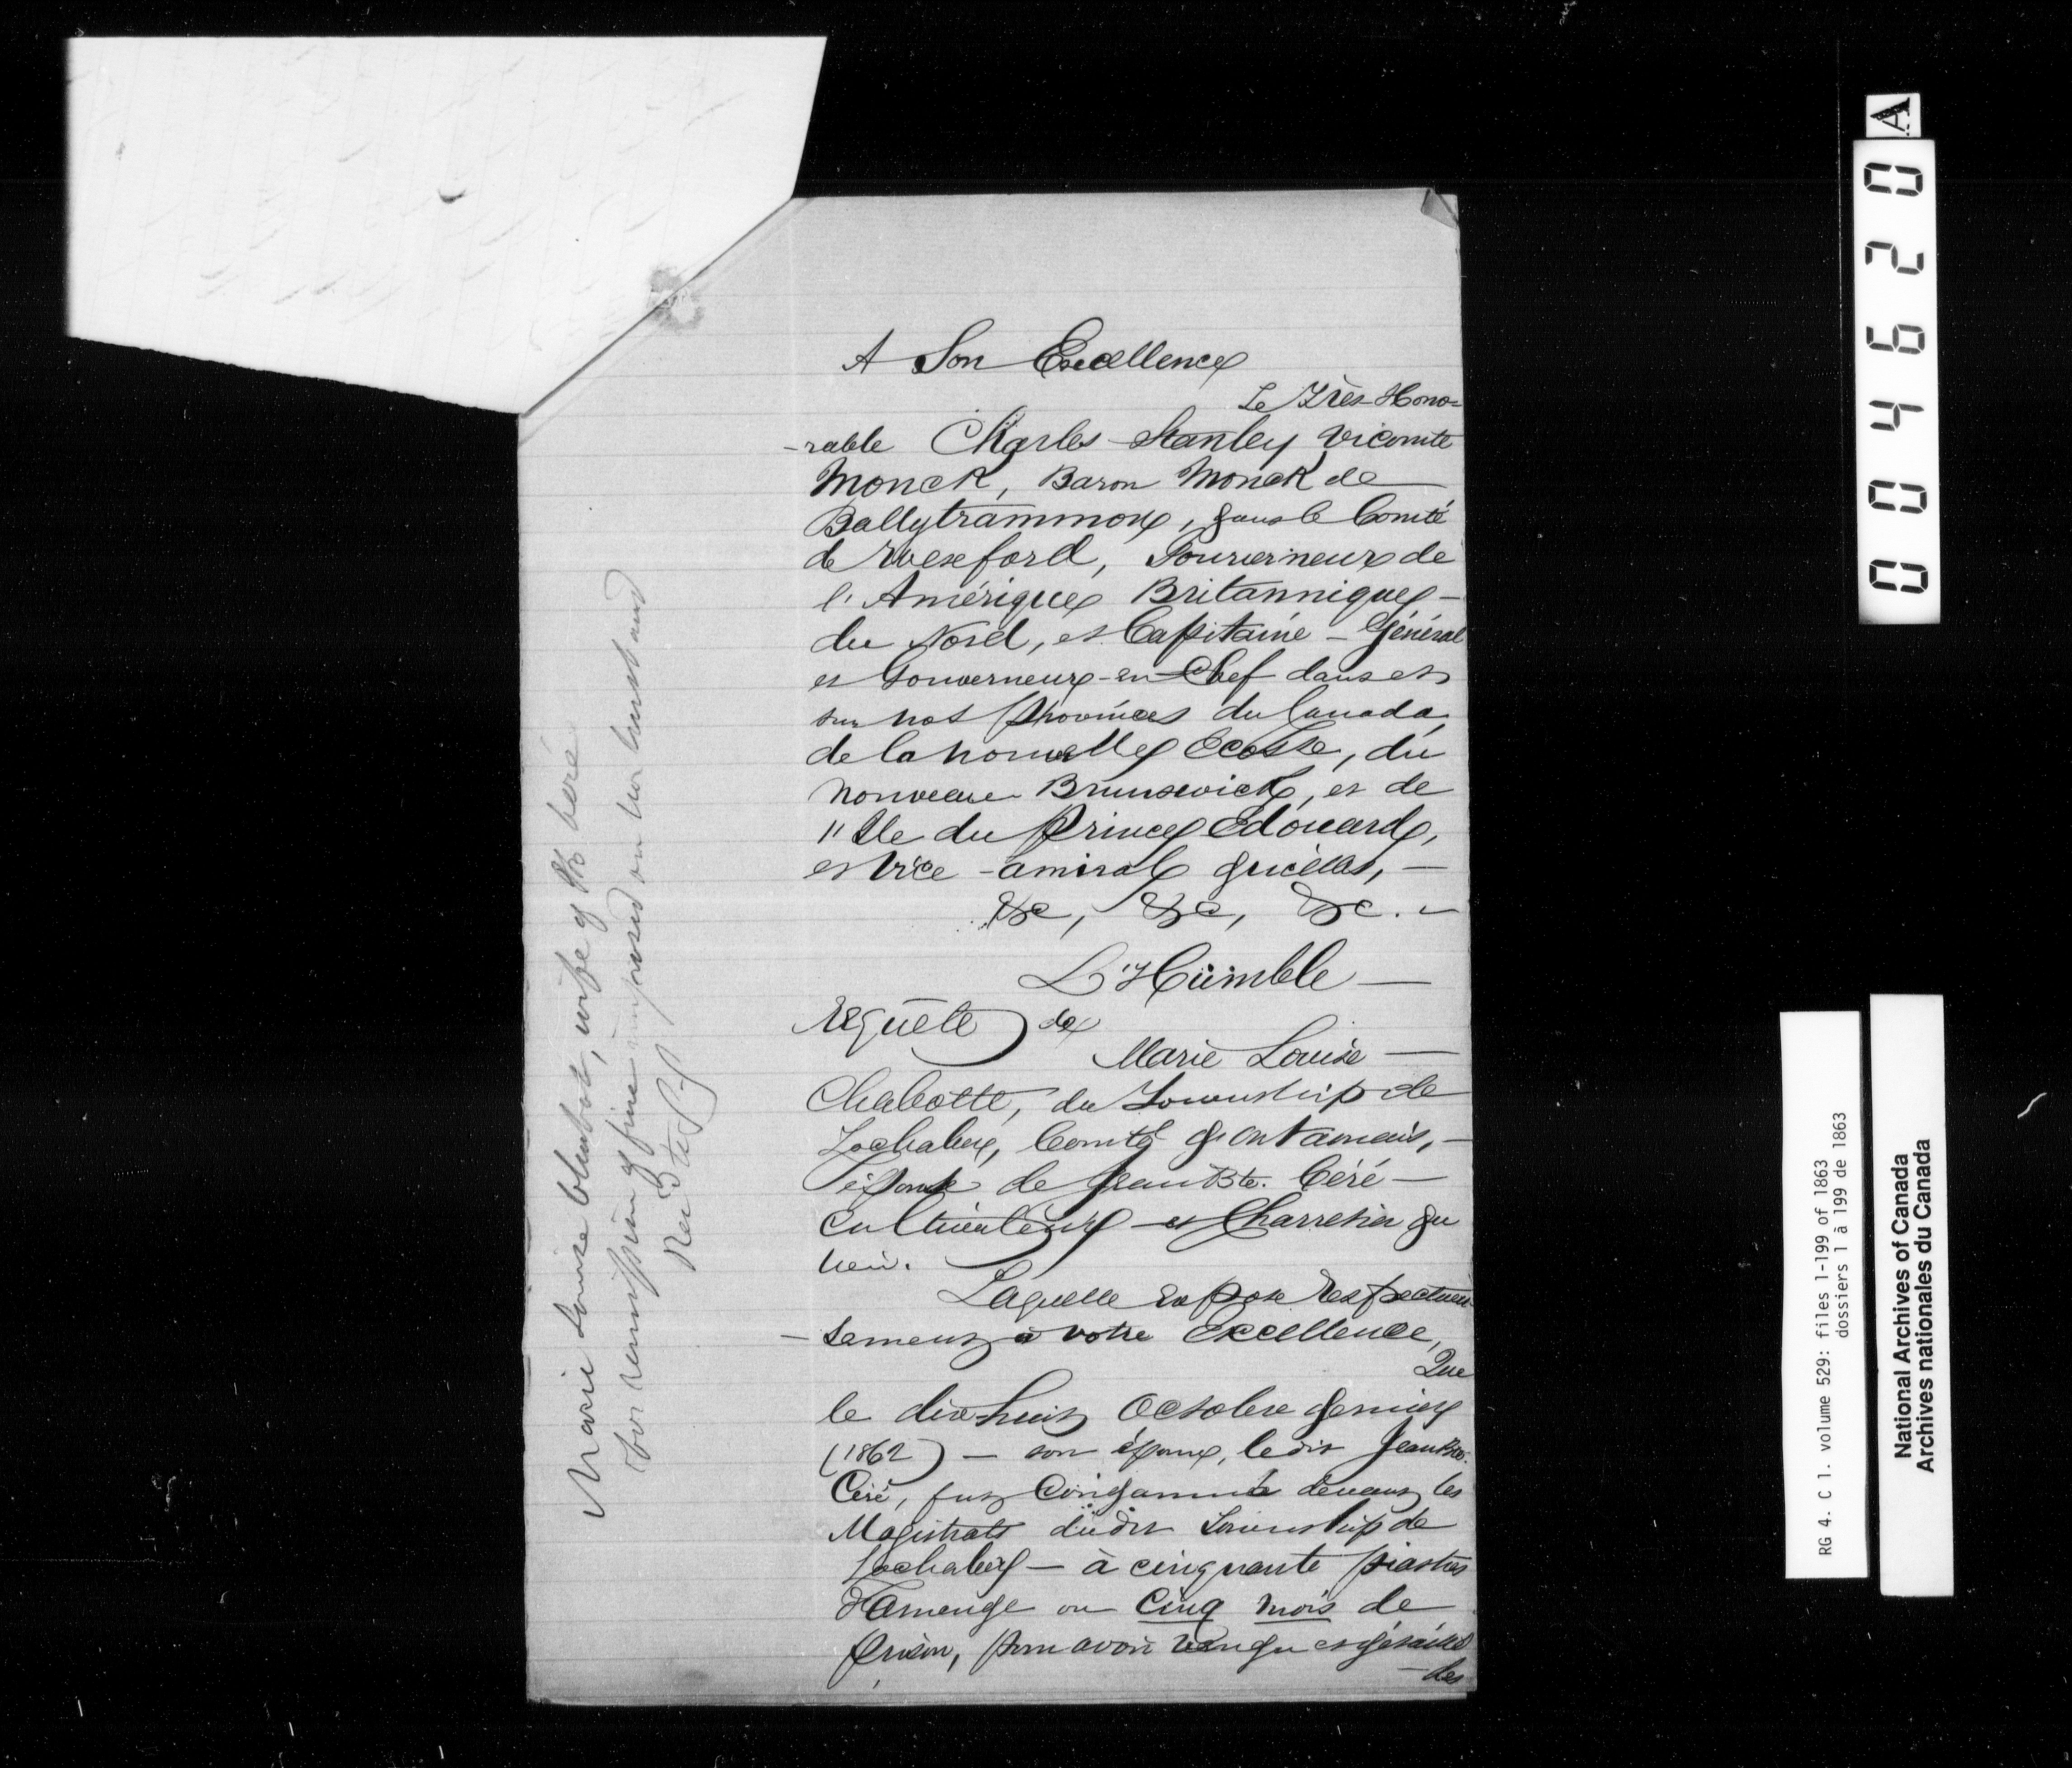 A Son Excellence
Le Très-Hono-
-rable Charles Stanley Vicomte
Monck, Baron Monck de
Ballytrammon, dans le Comté
de Wexford, Gouverneur de
l'Amérique Britannique -
du Nord, et Capitaine - Général
et Gouverneur-en-Chef dans et
sur nos provinces du Canada,
de la Nouvelle Ecosse, du
Nouveau Brunswick, et de
l'Ile du Prince Edouard,
et Vice-amiral d'icelles, -
&c, &c, &c. -
L'Humble -
Requête de
Marie Louise -
Chabotte, du Township de
Lochaber, Comté d'Outaouais, -
épouse de Jean Bte. Céré -
Cultivateur et Charretier du
lieu.
Laquelle Expose Respectueu
- sement à votre Excellence,
Que
le dix-huit Octobre dernier
(1862) - son époux, le dit Jean Bte.
Céré, fut Condamné devant les
Magistrats du dit Township de
Lochaber - à cinquante piastres
d'Amende ou Cinq mois de
prison, pour avoir vendu et détaillé
- des
Marie Louise Chabot, wife of J. B. Céré
for remission of fine imposed on her husband
Rec 3
004620 A
RG 4. C 1. volume 529: files 1-199 of 1863
dossiers 1 à 199 de 1863
National Archives of Canada
Archives nationales du Canada